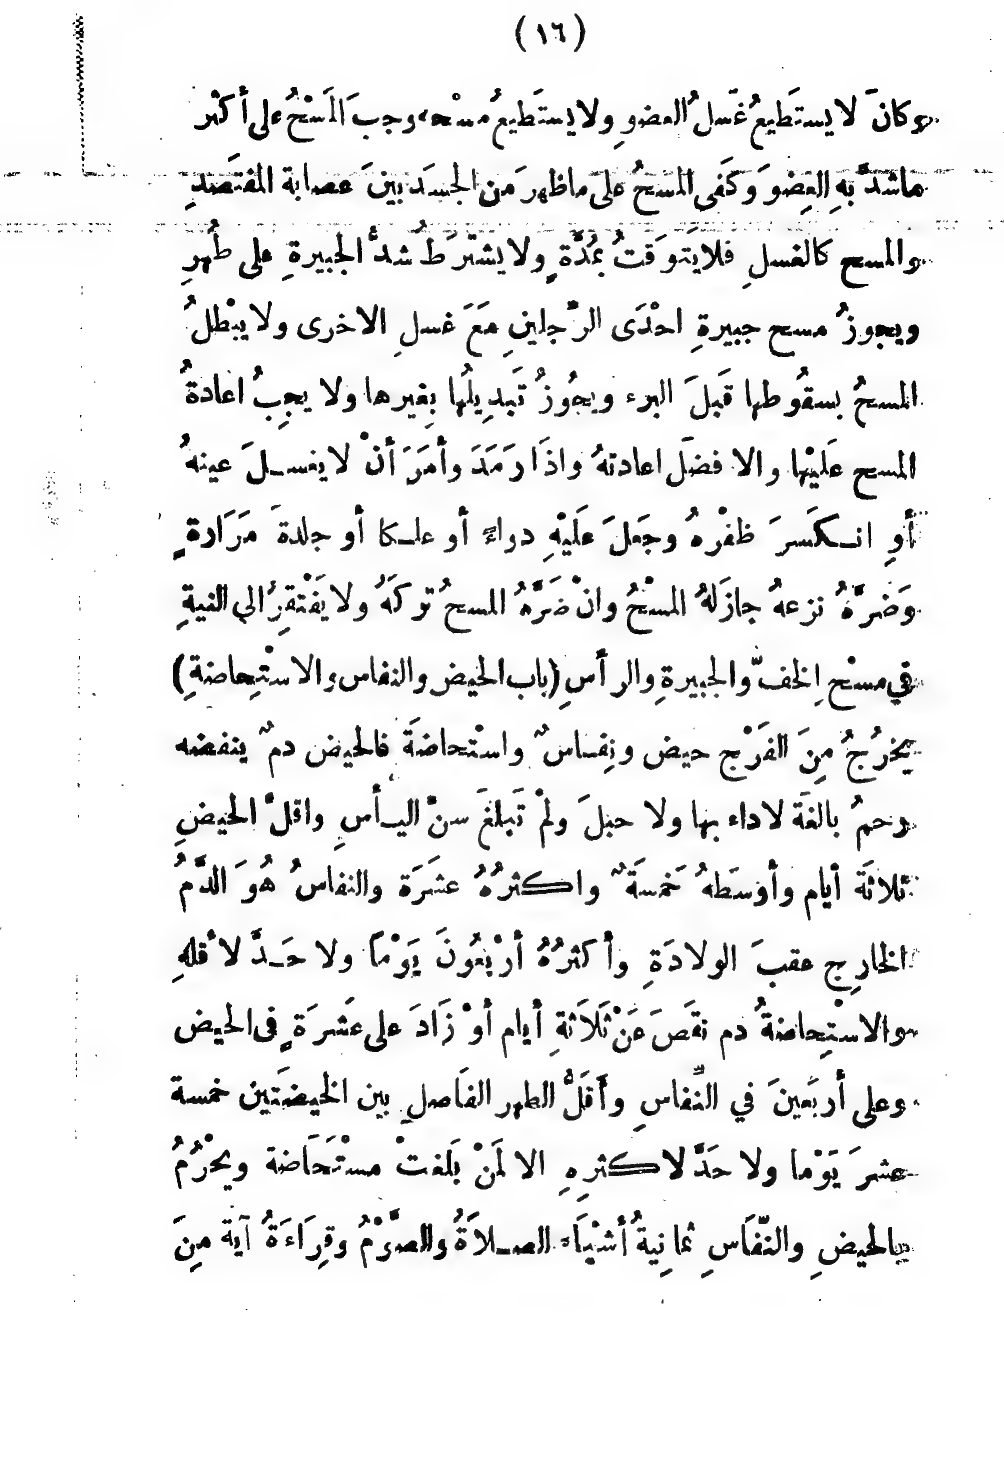 (١٦)
وكانَ لا يستَطيعُ غَسلُ العضوِ ولا يستَطيعُ مسْحه وجبَ المَسْحُ على أكثر
ماشدَّ بهِ العِضوَ وكَفَى المسحُ على ماظهرَ من الجسَد بينَ عصابة المفتَصدِ
والمسح كالغسلِ فلا يَتوَقتُ بمُدَّةٍ ولا يشترَطُ شدُّ الجبيرةِ على طُهرِ
ويجوزُ مسح جبيرةِ احْدَى الرّجلينِ مَعَ غسلِ الاخرى ولا يبْطلُ
المسحُ بسقُوطها قَبلَ البرء ويجُوزُ تَبدِيلُها بِغيرها ولا يجِبُ اعادةُ
المسح عَليْها والا فضَل اعادتهُ واذَا رَمَدَ وأمَرَ أنْ لا يغسـلَ عينهُ
أوِ انـكَسرَ ظفْرهُ وجَعلَ عَلَيْهِ دواءً أو علـكا أو جلدةَ مَرَارةٍ
وَضرَّهُ نزعهُ جازَلهُ المسْحُ وانْ ضَرَّهُ المسحُ تركَهُ ولا يَفْتقِرُ الى النيةِ
في مسْحِ الخفِّ والجبيرةِ والرأسِ (باب الحيض والنفاس والاسْتِحاضةِ)
يخرُجُ مِنَ الفَرْج حيض ونِفاسٌ واستْحاضةَ فالحيض دمٌ ينفضه
رحمُ بالغَة لاداء بها ولا حبلَ ولمْ تَبلغَ سنَّ اليـأسِ واقلَّ الحيضِ
ثلاثَة أيام وأوسَطهُ خَمسةَ واكثرُهُ عشرَة والنفاسُ هُوَ الدَّمُ
الخارِج عقبَ الولادَةِ وأكثرُهُ أرْبْعُونَ يَوْماً ولا حَـدَّ لأقلهِ
والاسْتِحاضةُ دم نقَصَ عَنْ ثَلَاثَةِ أيام أوْ زَادَ على عَشرَةٍ فى الحيض
وعلى أربَعينَ في النّفاسِ وأقَلُّ الطهر الفَاصلِ بين الحيضَتين خمسة
عشرَ يَوْما ولا حَدَّ لاكثرِهِ الا لمَنْ بَلَغتْ مسْتَحَاضة ويحْرُمُ
بالحيضِ والنّفَاسِ ثمانِيةُ أشْيَاء الصـلاَةُ والصَّوْمُ وقِرَاءَةُ آية مِنَ